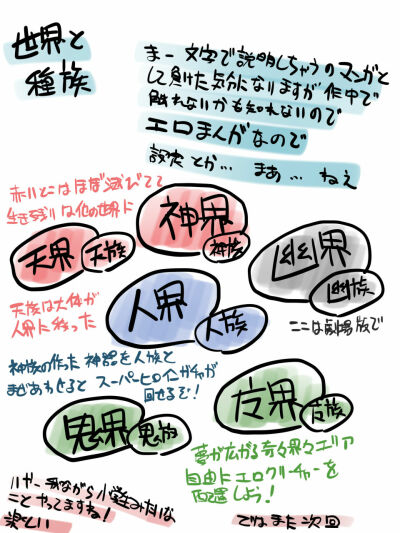 世界と
種族
まー文字で説明しちゃうのマンガと
して負けた気分になりますが作中で
触れないかも知れないので
エロまんがなので
設定とか… まぁ… ねぇ
赤いとこはほぼ滅びてて
生き残りは他の世界に
神界
神族
天界
天族
幽界
幽族
人界
人族
天族は大体が
人界に移った
ここは劇場版で
神族の作った神器を人族と
まぜあわせると スーパーヒロインガチャが
回せるぞ!
鬼界
鬼族
皮界
皮族
夢が広がる奇々界々エリア
自由にエロクリーチャーを
配置しよう!
いやー 我ながら小学生みたいな
ことやってますね!
楽しい
ではまた次回